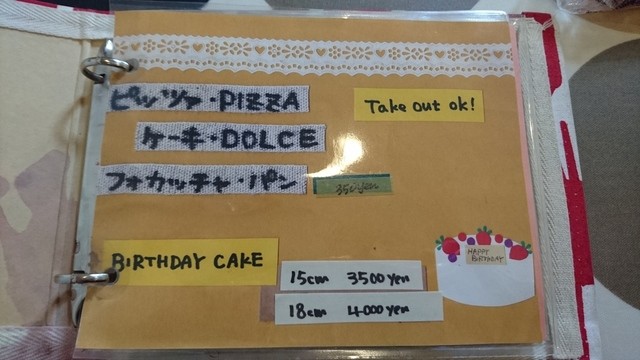 ピッツァ・PIZZA
Take out ok!
ケーキ・DOLCE
フォカッチャ・パン
350 yen
BIRTHDAY CAKE
15cm 3500 yen
18cm 4000 yen
HAPPY
BIRTHDAY